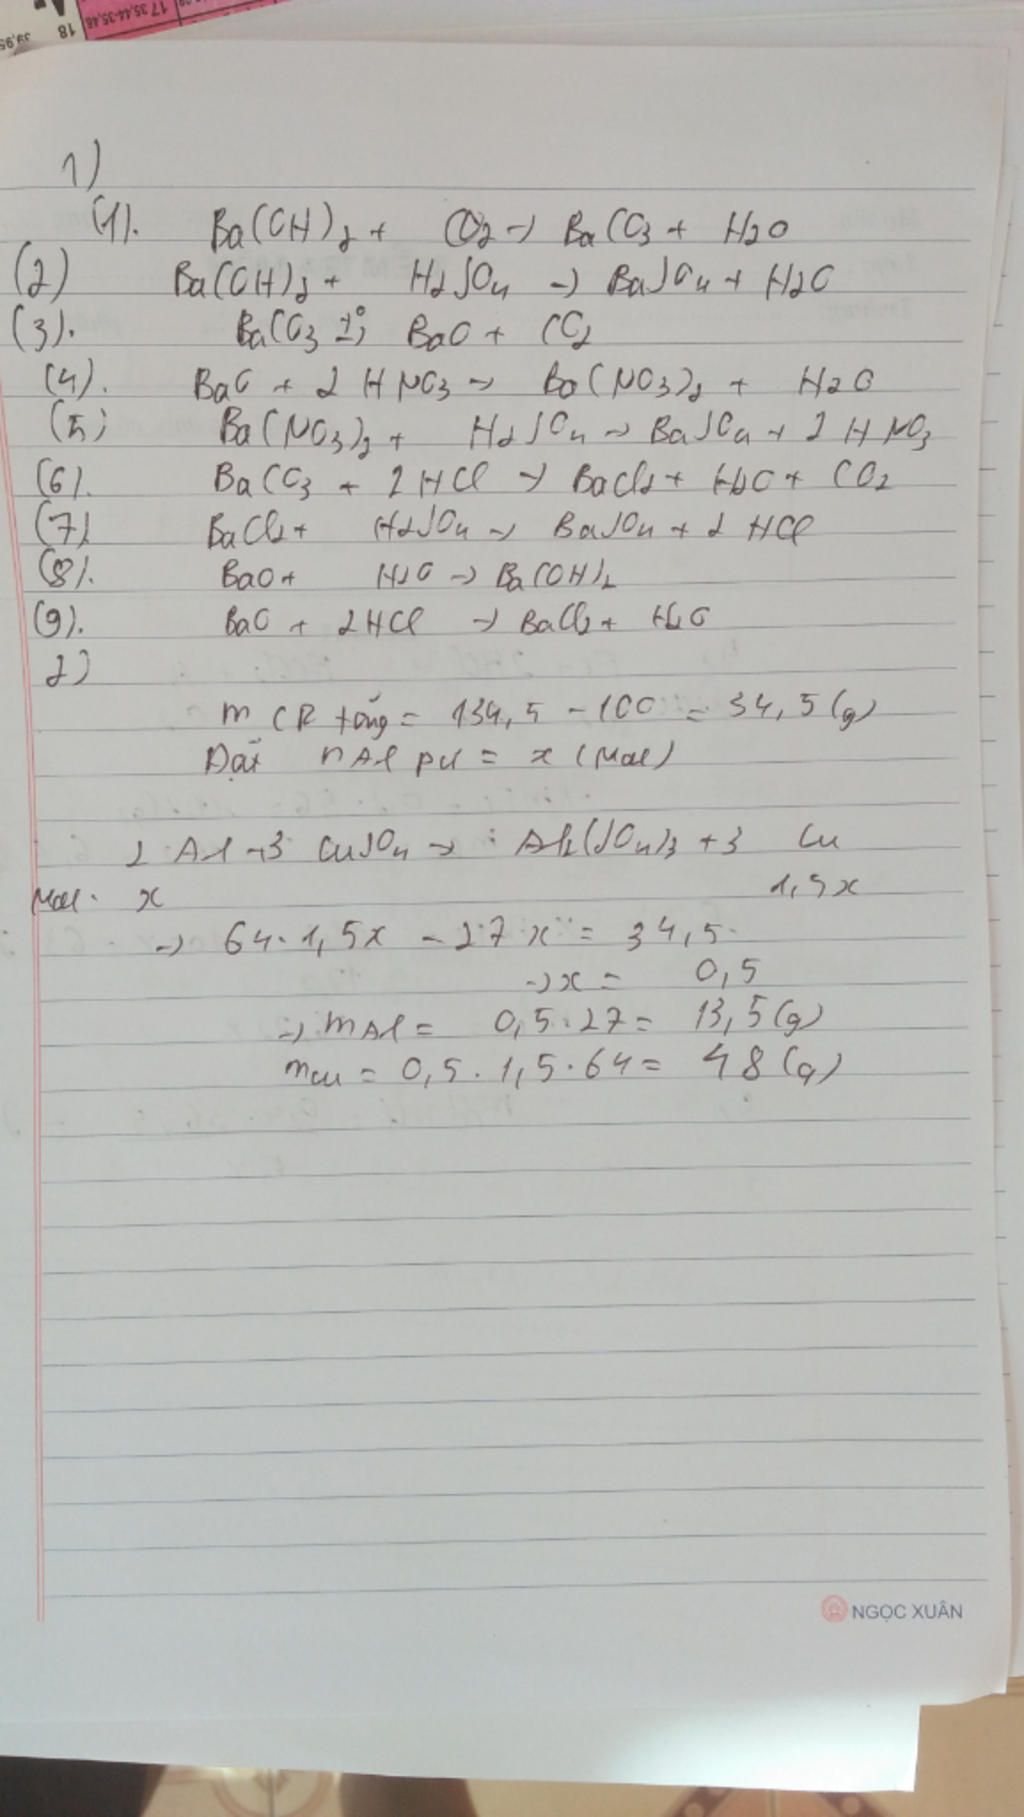 17 35,44-35,46
18
39,95
1)
(1). Ba(OH)2 + CO2 → BaCO3 + H2O
(2) Ba(OH)2 + H2SO4 → BaSO4 + H2O
(3). BaCO3 t°→ BaO + CO2
(4). BaO + 2HNO3 → Ba(NO3)2 + H2O
(5) Ba(NO3)2 + H2SO4 → BaSO4 + 2HNO3
(6). BaCO3 + 2HCl → BaCl2 + H2O + CO2
(7) BaCl2 + H2SO4 → BaSO4 + 2HCl
(8). BaO + H2O → Ba(OH)2
(9). BaO + 2HCl → BaCl2 + H2O
2)
m CR tăng = 134,5 - 100 = 34,5 (g)
Đặt nAl pư = x (mol)
2 Al + 3 CuSO4 → Al2(SO4)3 + 3 Cu
Mol. x 1,5x
→ 64.1,5x - 27x = 34,5
→ x = 0,5
→ mAl = 0,5.27 = 13,5 (g)
mCu = 0,5.1,5.64 = 48 (g)
NGỌC XUÂN